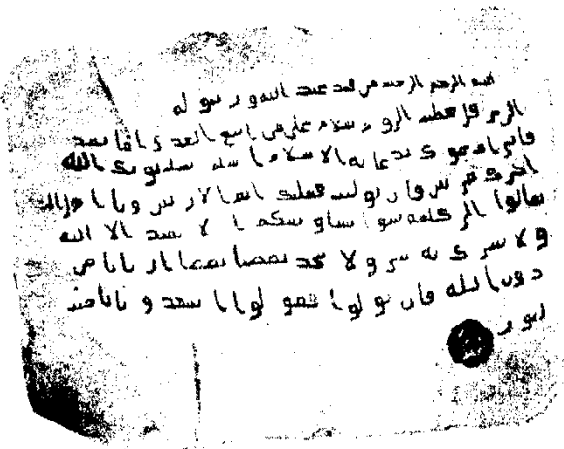 بسم الله الرحمن الرحيم من محمد عبد الله ورسوله
الى هرقل عظيم الروم سلام على من اتبع الهدى اما بعد
فانى ادعوك بدعاية الاسلام اسلم تسلم يوتك الله
اجرك مرتين فان توليت فعليك اثم الاريسيين ويا
تعالوا الى كلمة سوا بيننا وبينكم الا نعبد الا الله
ولا نشرك به شيا ولا يتخذ بعضنا بعضا اربابا من
دون الله فان تولوا فقولوا اشهدوا بانا مسلمون